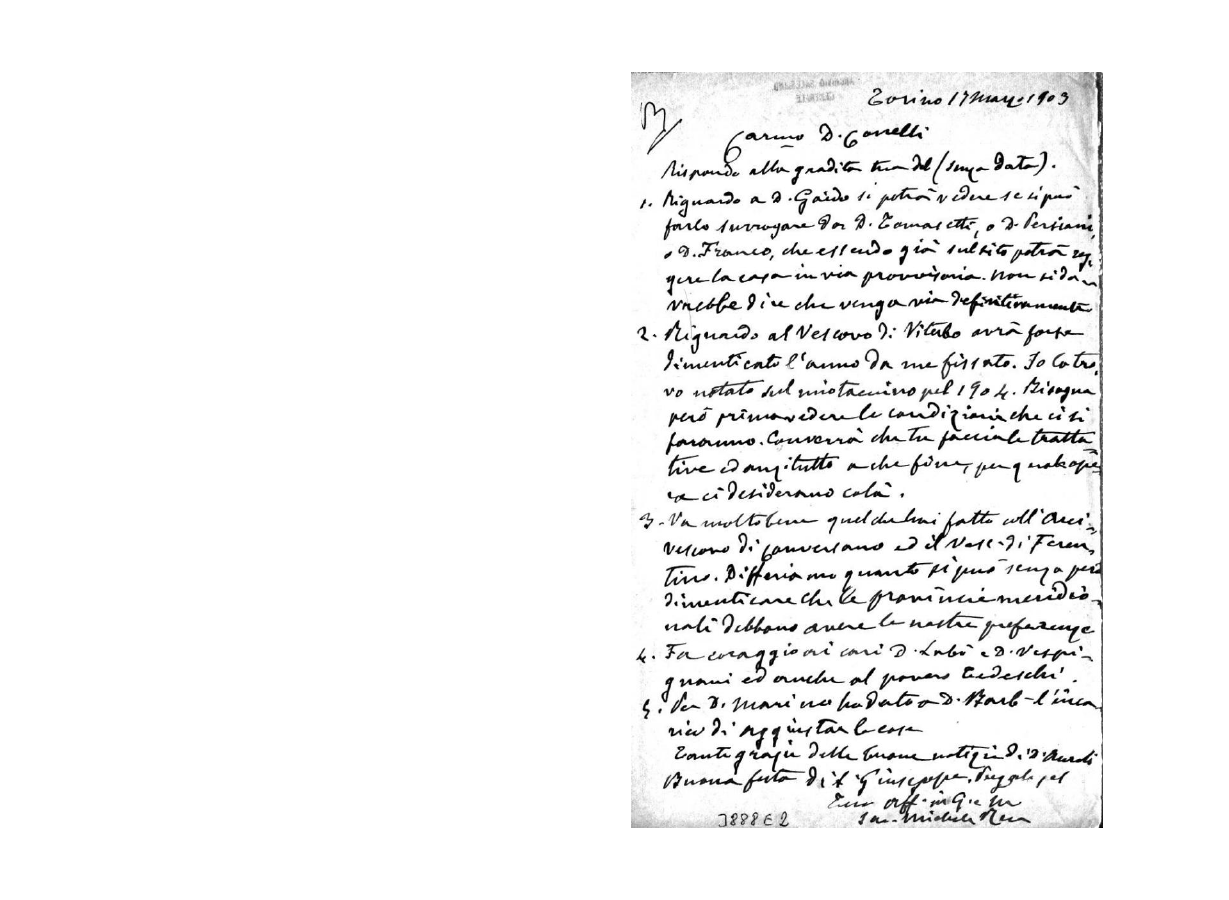 Torino 17 Marz. 1903
Carmo D. Conelli
Rispondo alla gradita tua del (senza data).
1. Riguardo a D. Gaido si potrà vedere se si può
farlo surrogare da D. Tomasetti, o D. Persiani,
o D. Franco, che essendo già sul sito potrà reg-
gere la casa in via provvisoria. Non si do-
vrebbe dire che venga via definitivamente
2. Riguardo al Vescovo di Viterbo avrà forse
dimenticato l'anno da me fissato. Io lo tro-
vo notato sul mio taccuino pel 1904. Bisogna
però prima vedere le condizioni che ci si
faranno. Converrà che tu faccia le tratta-
tive ed anzitutto a che fine, per quale ope-
ra ci desiderano colà.
3. Va molto bene quel che hai fatto coll'Arci-
vescovo di Conversano ed il Vesc. di Feren-
tino. Differiamo quanto si può senza però
dimenticare che le provincie meridio-
nali debbono avere le nostre preferenze
4. Fa coraggio ai cari D. Labò e D. Vespi-
gnani ed anche al povero Tedeschi.
5. Per D. Marino ho dato a D. Barb- l'inca-
rico di aggiustar le cose
Tante grazie delle buone notizie di
Buona festa di S. Giuseppe. Prega pel
Tuo aff. in G. e M.
Sac. Michele Rua
3888 E 2